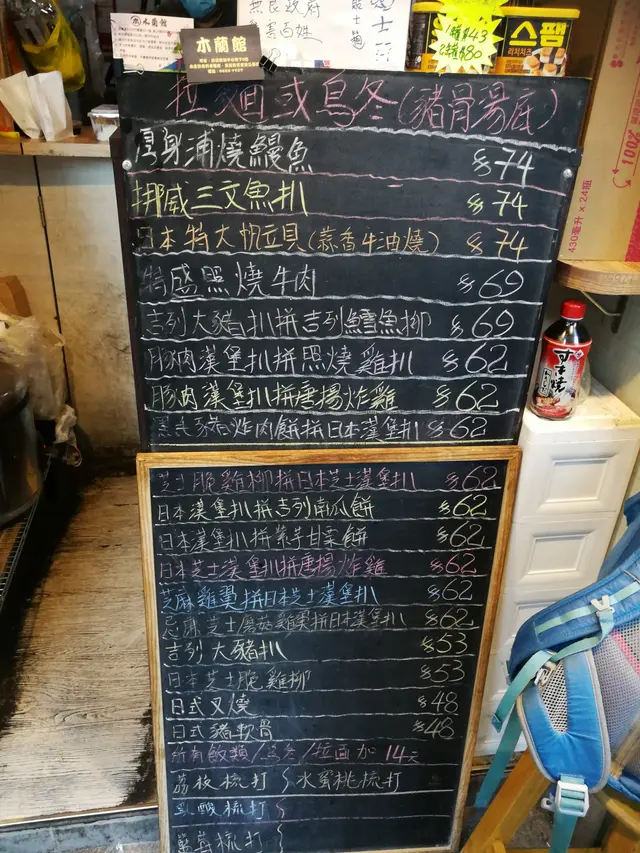 木蘭館
木蘭館
無良政府
無畏百姓
1罐$43
2罐$80
스팸
리치치즈
拉麵或烏冬(豬骨湯底)
厚身浦燒鰻魚 $74
挪威三文魚扒 $74
日本特大帆立貝(蒜香牛油燒) $74
特盛照燒牛肉 $69
吉列大豬扒拼吉列鱈魚柳 $69
豚肉漢堡扒拼照燒雞扒 $62
豚肉漢堡扒拼唐揚炸雞 $62
黑毛豬炸肉餅拼日本漢堡扒 $62
芝士脆雞柳拼日本芝士漢堡扒 $62
日本漢堡扒拼吉列南瓜餅 $62
日本漢堡扒拼紫芋甘栗餅 $62
日本芝士漢堡扒拼唐揚炸雞 $62
芝麻雞翼拼日本芝士漢堡扒 $62
芝士蘑菇雞翼拼日本漢堡扒 $62
吉列大豬扒 $53
日本芝士脆雞柳 $53
日式叉燒 $48
日式豬軟骨 $48
所有飯類/烏冬/拉面加14元
荔枝梳打 水蜜桃梳打
乳酸梳打
梳打
100%
430毫升 x 24瓶
すき焼